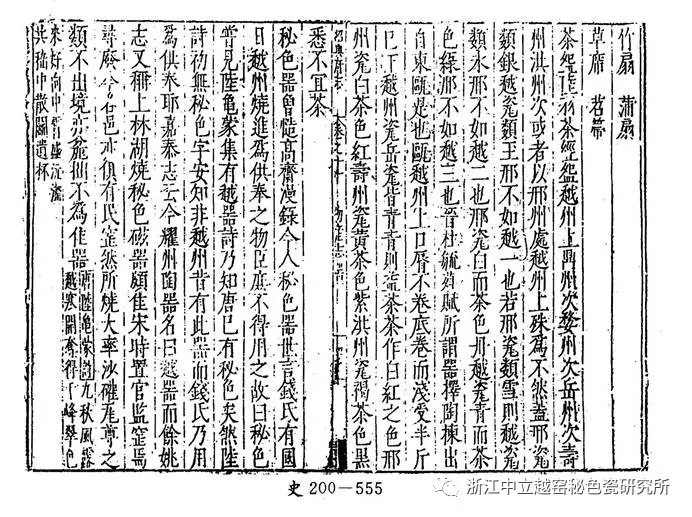 竹扇 蒲扇
草席 苕帚
茶椀陸羽茶經椀越州上鼎州次婺州次岳州次壽
州洪州次或者以邢州處越州上殊為不然蓋邢瓷
類銀越瓷類玉邢不如越一也若邢瓷類雪則越瓷
類氷邢不如越二也邢瓷白而茶色丹越瓷青而茶
色綠邢不如越三也晉杜毓荈賦所謂器擇陶揀出
自東甌是也甌越州上口脣不卷底卷而淺受半斤
已下越州瓷岳瓷皆青青則益茶茶作白紅之色邢
州瓷白茶色紅壽州瓷黃茶色紫洪州瓷褐茶色黑
悉不宜茶
紹興府志 物產志
秘色器曾慥高齋漫錄今人秘色器世言錢氏有國
日越州燒進為供奉之物臣庶不得用之故曰秘色
嘗見陸龜蒙集有越器詩乃知唐已有秘色矣然陸
詩初無秘色字安知非越州昔有此器而錢氏乃用
為供奉耶嘉泰志云今耀州陶器名曰越器而餘姚
志又稱上林湖燒秘色磁器頗佳宋時置官監窑焉
尋廢今各邑亦俱有民窑然所燒大率沙礶瓦尊之
類不出境亦麄拙不為佳器唐陸龜蒙詩九秋風露
越窑開奪得千峰翠色
來好向中宵盛沆瀣
共嵇中散鬭遺杯
史 200—555
浙江中立越窑秘色瓷研究所